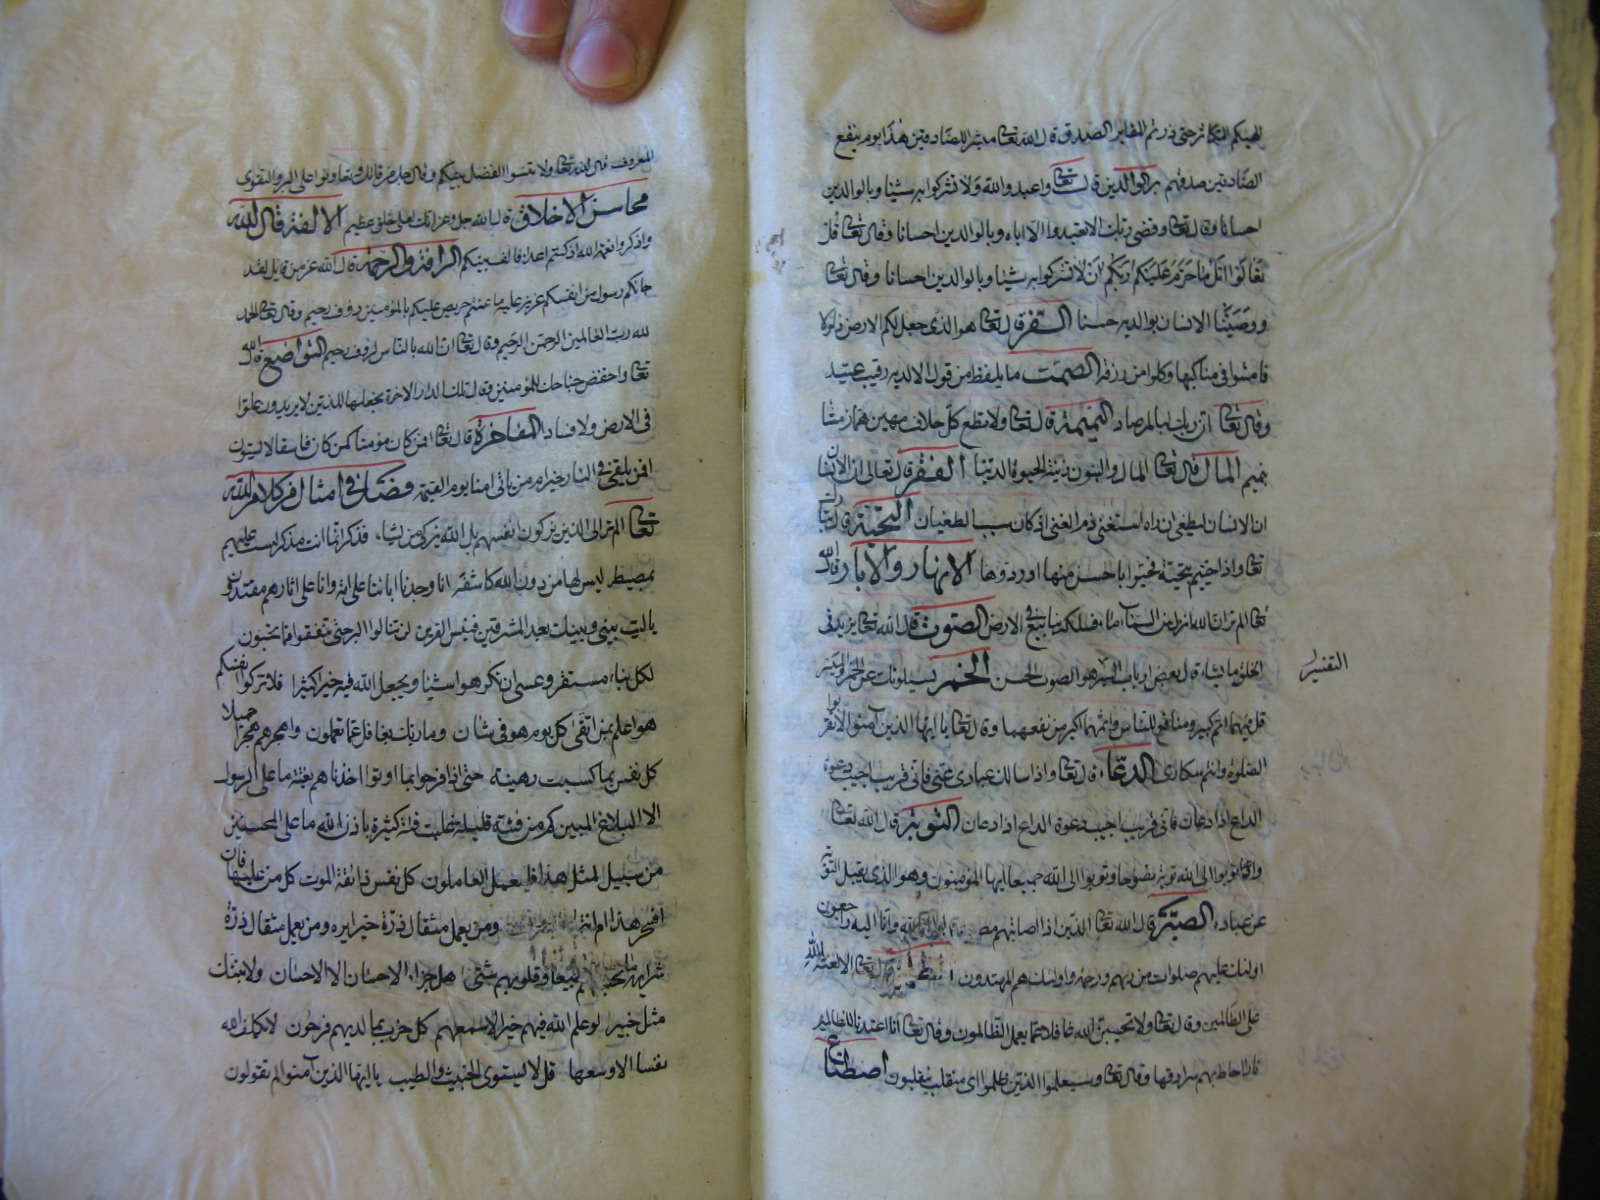 الهيكم التكاثر حتى زرتم المقابر الصدق قال الله تعا هذا يوم ينفع
الصادقين صدقهم بر الوالدين قال تعا واعبدوا الله ولا تشركوا به شيئا وبالوالدين
احسانا وقال تعا وقضى ربك الا تعبدوا الا اياه وبالوالدين احسانا وقال تعا قل
تعالوا اتل ما حرم عليكم ربكم ان لا تشركوا به شيئا وبالوالدين احسانا وقال تعا
ووصينا الانسان بوالديه حسنا السفر قال تعا هو الذى جعل لكم الارض ذلولا
فامشوا فى مناكبها وكلوا من رزقه الصمت ما يلفظ من قول الا لديه رقيب عتيد
وقال تعا ان ربك لبالمرصاد النميمة قال تعا ولا تطع كل حلاف مهين هماز مشا
بنميم المال قال تعا المال والبنون زينة الحيوة الدنيا الفقر قال تعالى
ان الانسان ليطغى ان راه استغنى ذم الغنى اذ كان سببا لطغيان التحية قال
تعا واذا حييتم بتحية فحيوا باحسن منها او ردوها الانهار والابار قال الله
تعا الم تر ان الله انزل من السماء ماء فسلكه ينابيع فى الارض الصوت قال الله تعا يزيد فى
الخلق ما يشاء قال بعض ارباب التفسير هو الصوت الحسن الخمر يسيلونك عن الخمر والميسر
التفسير
قل فيهما اثم كبير ومنافع للناس واثمهما اكبر من نفعهما وقال تعا يا ايها الذين آمنوا لا تقربوا
الصلوة وانتم سكارى الدعاء قال تعا واذا سالك عبادى عنى فانى قريب اجيب دعوة
الداع اذا دعان فانى قريب اجيب دعوة الداع اذا دعان التوبة قال الله تعا
توبوا الى الله توبة نصوحا وتوبوا الى الله جميعا ايها المؤمنون وهو الذى يقبل التوبة
عن عباده الصبر قال الله تعا الذين اذا اصابتهم مصيبة قالوا انا لله وانا اليه راجعون
اولئك عليهم صلوات من ربهم ورحمة واولئك هم المهتدون قال تعا الا لعنة الله
على الظالمين وقال تعا ولا تحسبن الله غافلا عما يعمل الظالمون وقال تعا انا اعتدنا للظالمين
نارا احاط بهم سرادقها وقال تعا وسيعلموا الذين ظلموا اى منقلب ينقلبون اصطناع
المعروف قال الله تعا ولا تنسوا الفضل بينكم وقال جل من قائل وتعاونوا على البر والتقوى
محاسن الاخلاق قال الله جل وعز انك لعلى خلق عظيم الالفة قال الله
واذكروا نعمة الله اذ كنتم اعداء فالف بينكم الرافة والرحمة قال الله عز من قايل لقد
جائكم رسول من انفسكم عزيز عليه ما عنتم حريص عليكم بالمؤمنين رؤف رحيم وقال تعا الحمد
لله رب العالمين الرحمن الرحيم وقال تعا ان الله بالناس لرؤف رحيم التواضع قال الله
تعا واخفض جناحك للمؤمنين قال تلك الدار الاخرة نجعلها للذين لا يريدون علوا
فى الارض ولا فسادا المفاخرة قال تعا افمن كان مؤمنا كمن كان فاسقا لا يستون
افمن يلقى فى النار خير ام من ياتى امنا يوم القيمة فصل فى امثال من كلام الله
تعا الم تر الى الذين يزكون انفسهم بل الله يزكى من يشاء فذكر انما انت مذكر لست عليهم
بمصيطر ليس لها من دون الله كاشفة انا وجدنا اباءنا على امة وانا على اثارهم مقتدون
ياليت بينى وبينك بعد المشرقين فبئس القرين لن تنالوا البر حتى تنفقوا مما تحبون
لكل نباء مستقر وعسى ان تكرهوا شيئا ويجعل الله فيه خيرا كثيرا فلا تزكوا انفسكم
هو اعلم بمن اتقى كل يوم هو فى شان وما ربك بغافل عما تعملون واهجرهم هجرا جميلا
كل نفس بما كسبت رهينة حتى اذا فرحوا بما اوتوا اخذناهم بغتة ما على الرسول
الا البلاغ المبين كم من فئة قليلة غلبت فئة كثيرة باذن الله ما على المحسنين
من سبيل لمثل هذا فليعمل العاملون كل نفس ذائقة الموت كل من عليها فان
افسحر هذا ام انتم لا تبصرون ومن يعمل مثقال ذرة خيرا يره ومن يعمل مثقال ذرة
شرا يره تحسبهم جميعا وقلوبهم شتى هل جزاء الاحسان الا الاحسان ولا ينبئك
مثل خبير لو علم الله فيهم خيرا لاسمعهم كل حزب بما لديهم فرحون لا يكلف الله
نفسا الا وسعها قل لا يستوى الخبيث والطيب يا ايها الذين آمنوا لم تقولون